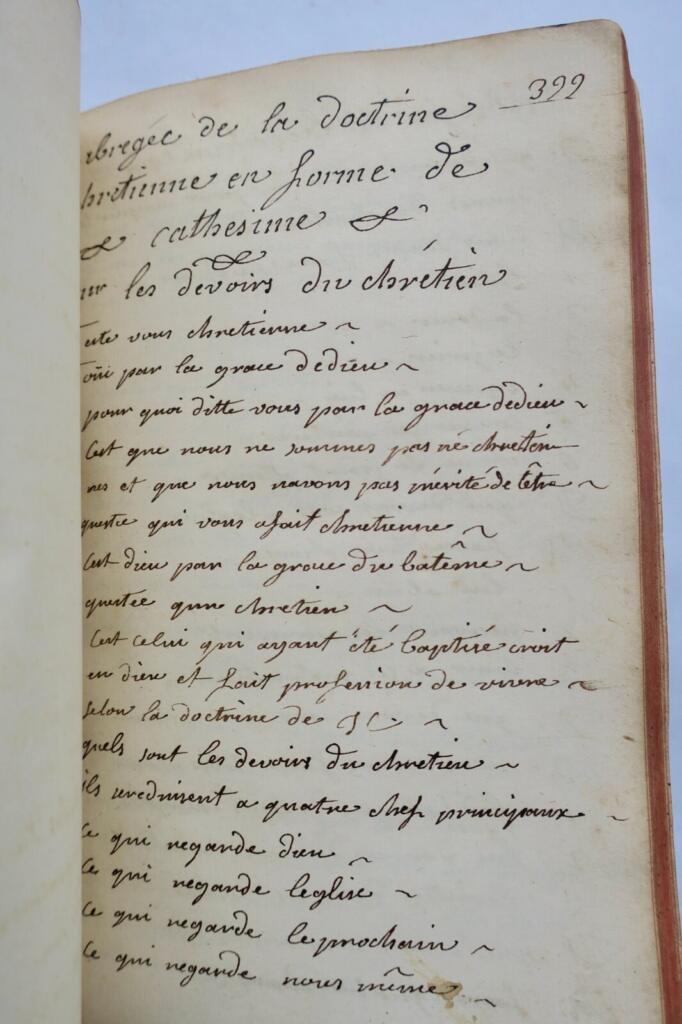 399
abregée de la doctrine
chretienne en forme de
cathesime
sur les devoirs du chrétien
ete vous chretienne ~
oüi par la grace dedieu ~
pour quoi ditte vous par la grace dedieu ~
Cest que nous ne sommes pas né chretein
nes et que nous navons pas mérité de lêtre ~
questce qui vous afait chretienne ~
Cest dieu par la grace du batême ~
questce qun chretien ~
Cest celui qui ayant été baptisé croit
en dieu et fait profession de vivre ~
selon la doctrine de JC ~
quels sont les devoirs du chretien ~
ils sereduisent a quatre chef principaux ~
ce qui regarde dieu ~
ce qui regarde leglise ~
ce qui regarde le prochain ~
ce qui regarde nous même ~